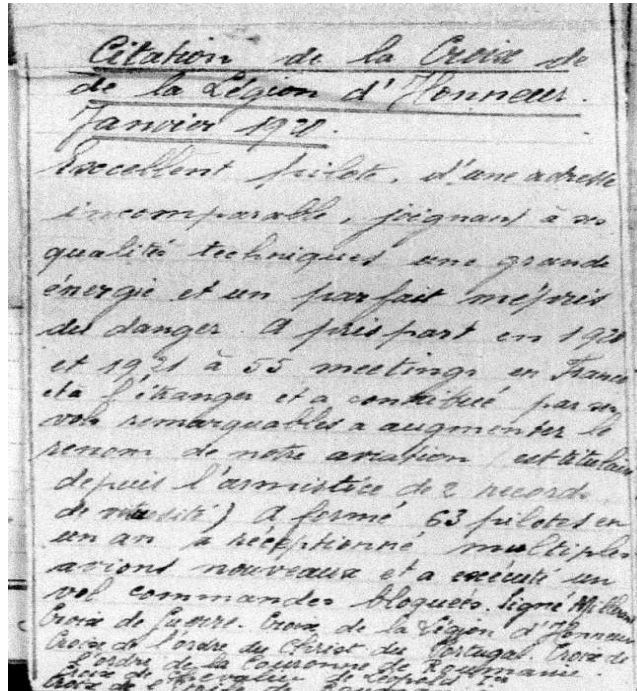 Citation de la Croix de
de la Légion d'Honneur.
Janvier 1921.
Excellent pilote, d'une adresse
incomparable, joignant à ses
qualités techniques une grande
énergie et un parfait mépris
du danger. A pris part en 1920
et 1921 à 55 meetings en France
et à l'étranger et a contribué par ses
vols remarquables a augmenter le
renom de notre aviation (est titulaire
depuis l'armistice de 2 records
de) A formé 63 pilotes en
un an a réceptionné multiples
avions nouveaux et a exécuté un
vol commandes bloquées. signé Millerand
Croix de Guerre. Croix de la Légion d'Honneur
Croix de l'ordre du Christ du Portugal Croix de
l'ordre de la Couronne de Roumanie.
Croix de Chevalier de Léopold 1er
Croix de